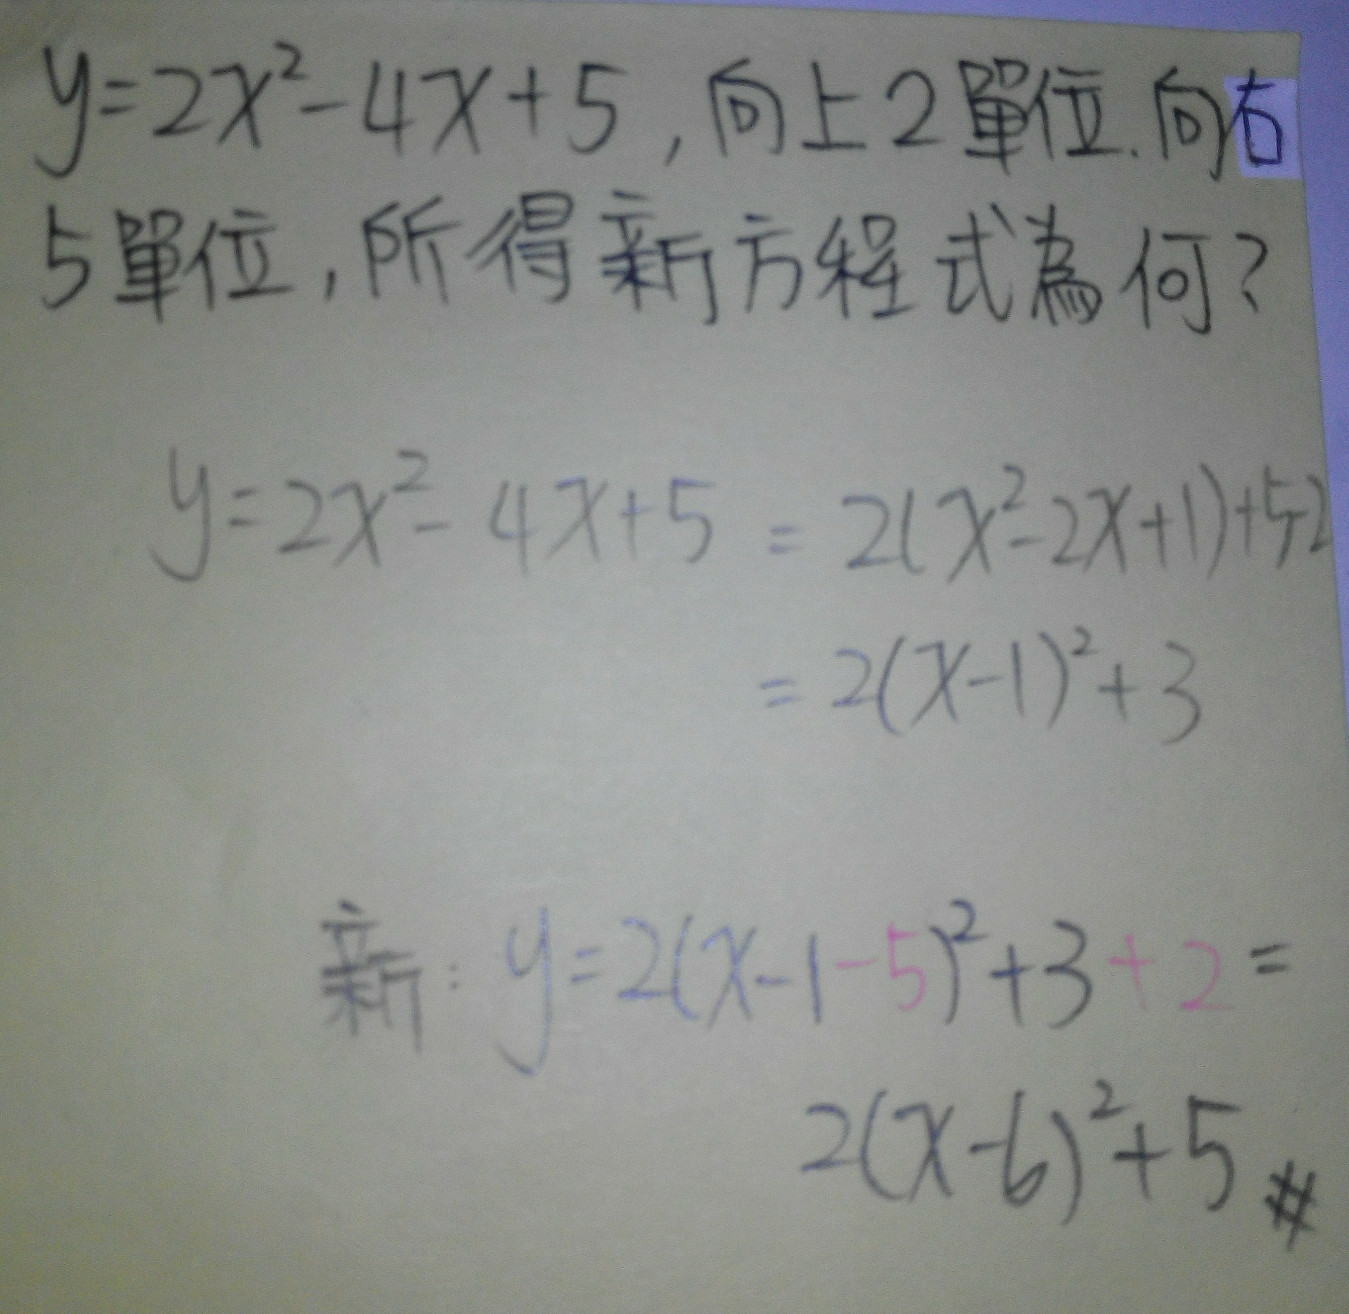 y=2x²-4x+5,向上2單位.向右
5單位,所得新方程式為何?
y=2x²-4x+5=2(x²-2x+1)+5-2
=2(x-1)²+3
新:y=2(x-1-5)²+3+2=
2(x-6)²+5#